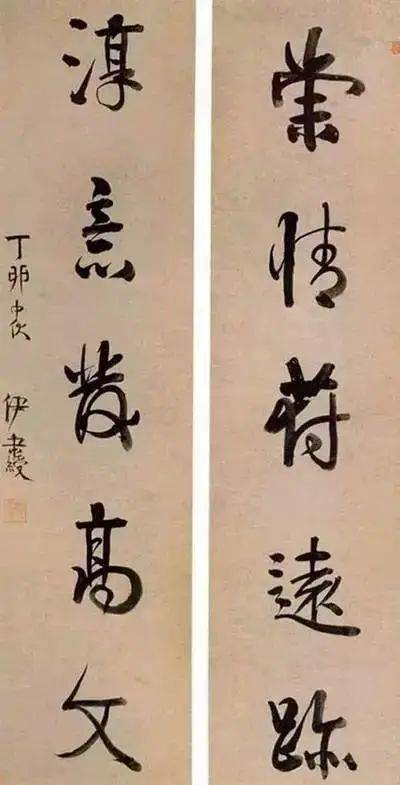 崇情符遠跡
淳意發高文
丁卯中 伊秉綬